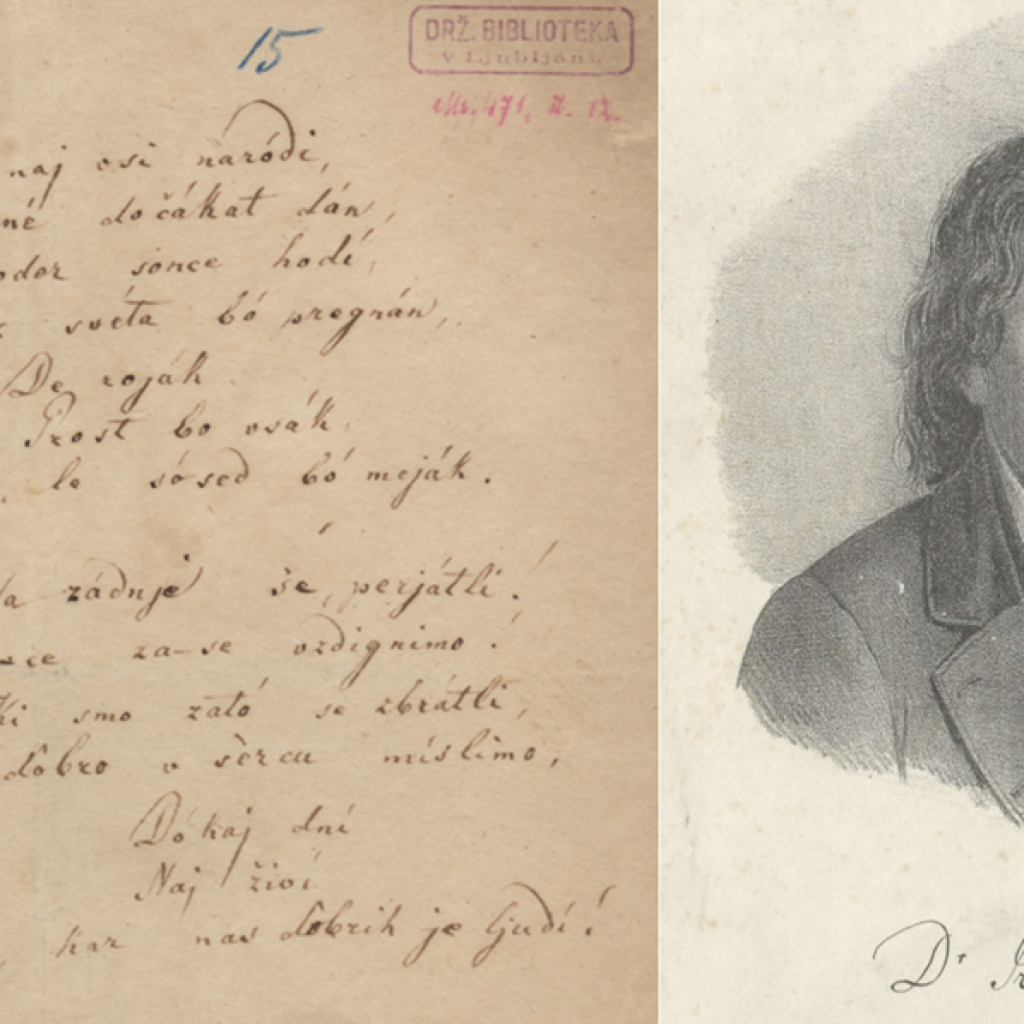 15
DRŽ. BIBLIOTEKA
v Ljubljani.
Ms. 471,
naj vsi naródi,
né dočákat dán,
odor sonce hodí,
svéta bó pregnán,
De roják
Prost bo vsák,
le sósed bó meják.
zádnje še, perjátli!
ce za-se vzdignimo!
Ki smo zató se zbrátli,
dôbro v sèrcu míslimo,
Dókaj dní
Naj živí
kar nas dobrih je ljudí!
Dr